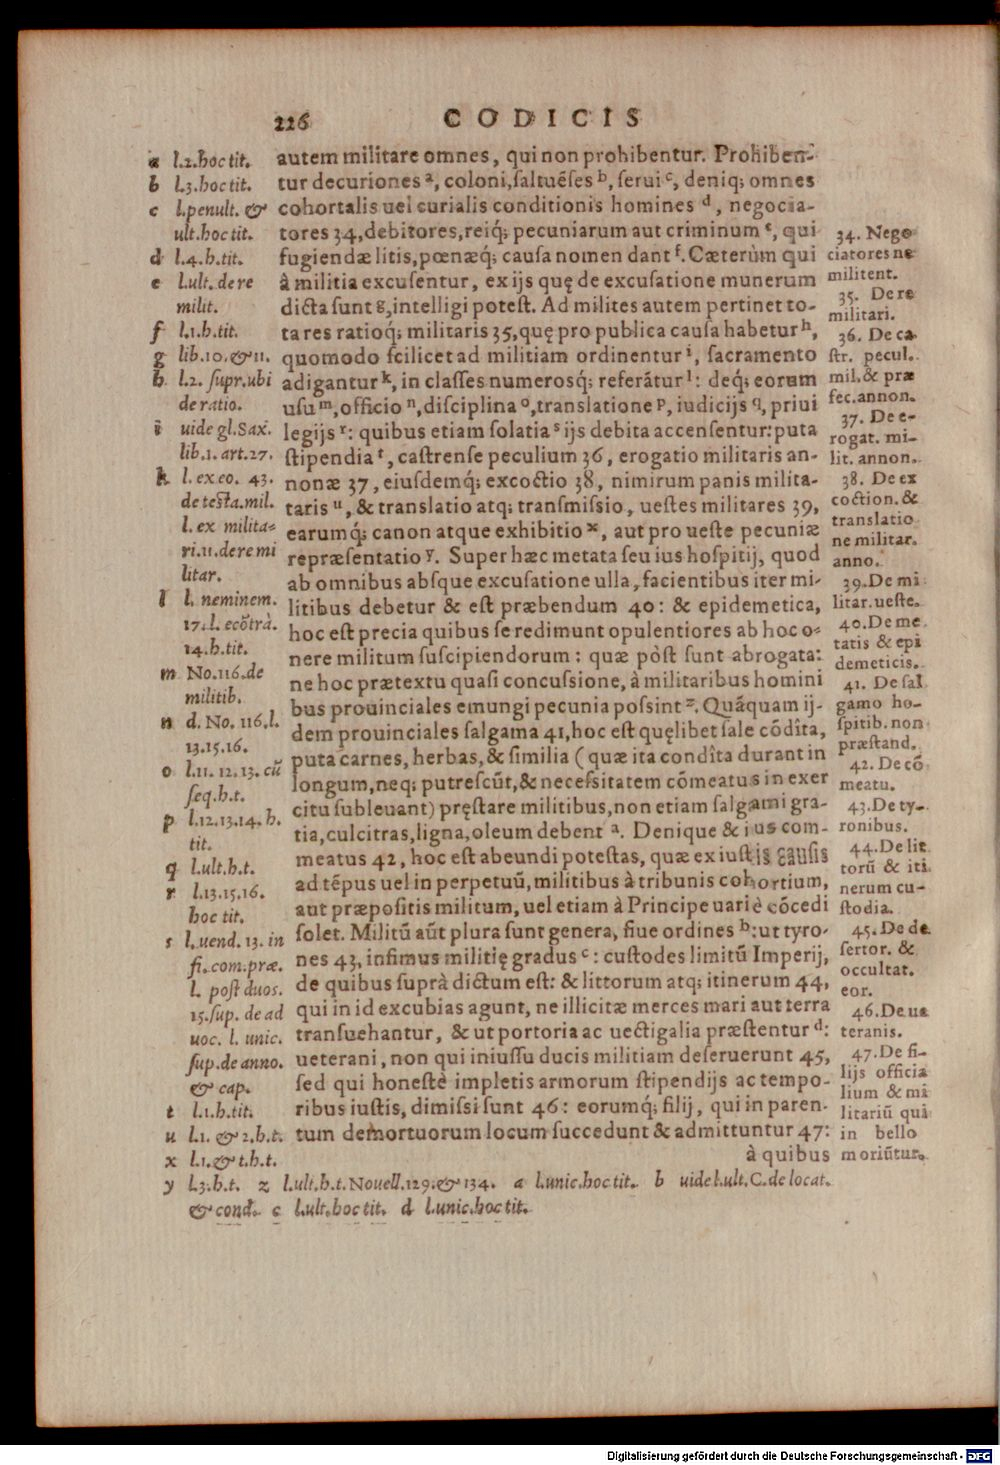 226 CODICIS
a l.2.hoc tit.
b l.3.hoc tit.
c l.penult. &
ult.hoc tit.
d l.4.h.tit.
e l.ult. de re
milit.
f l.1.h.tit.
g lib.10.&11.
h l.2. supr.ubi
de ratio.
i uide gl.Sax.
lib.1.art.27.
k l. ex eo. 43.
de testa.mil.
l. ex milita=
ri.11.de re mi
litar.
l l. neminem.
17.l. ecõtrà.
14.h.tit.
m No.116.de
militib.
n d. No. 116.l.
13.15.16.
o l.11. 12. 13. cũ
seq.h.t.
p l.12.13.14. h.
tit.
q l.ult.h.t.
r l.13.15.16.
hoc tit.
s l.uend. 13. in
fi.com.præ.
l. post duos.
15.sup. de ad
uoc. l. unic.
sup.de anno.
& cap.
t l.1.h.tit.
u l.1. & 2.h.t.
x l.1.& t.h.t.
autem militare omnes, qui non prohibentur. Prohiben-
tur decuriones ᵃ, coloni, saltuẽses ᵇ, serui ᶜ, deniq; omnes
cohortalis uel curialis conditionis homines ᵈ, negocia-
tores 34, debitores, reiq́; pecuniarum aut criminum ᵉ, qui
fugiendæ litis, pœnæq́; causa nomen dant ᶠ. Cæterùm qui
â militia excusentur, ex ijs quę de excusatione munerum
dicta sunt ᵍ, intelligi potest. Ad milites autem pertinet to-
ta res ratioq́; militaris 35, quę pro publica causa habetur ʰ,
quomodo scilicet ad militiam ordinentur ⁱ, sacramento
adigantur ᵏ, in classes numerosq́; referãtur ˡ: deq́; eorum
usu ᵐ, officio ⁿ, disciplina ᵒ, translatione ᵖ, iudicijs q, priui
legijs ʳ: quibus etiam solatia ˢ ijs debita accensentur: puta
stipendia ᵗ, castrense peculium 36, erogatio militaris an-
nonæ 37, eiusdemq́; excoctio 38, nimirum panis milita-
taris ᵘ, & translatio atq; transmissio, uestes militares 39,
earumq́; canon atque exhibitio ˣ, aut pro ueste pecuniæ
repræsentatio ʸ. Super hæc metata seu ius hospitij, quod
ab omnibus absque excusatione ulla, facientibus iter mi-
litibus debetur & est præbendum 40: & epidemetica,
hoc est precia quibus se redimunt opulentiores ab hoc o=
nere militum suscipiendorum: quæ pòst sunt abrogata:
ne hoc prætextu quasi concussione, à militaribus homini
bus prouinciales emungi pecunia possint ᶻ. Quãquam ij-
dem prouinciales salgama 41, hoc est quęlibet sale cõdîta,
puta carnes, herbas, & similia (quæ ita condîta durant in
longum, neq; putrescũt, & necessitatem cõmeatus in exer
citu subleuant) pręstare militibus, non etiam salgami gra-
tia, culcitras, ligna, oleum debent ᵃ. Denique & ius com-
meatus 42, hoc est abeundi potestas, quæ ex iustis causis
ad tẽpus uel in perpetuũ, militibus à tribunis cohortium,
aut præpositis militum, uel etiam à Principe uariè cõcedi
solet. Militũ aũt plura sunt genera, siue ordines ᵇ: ut tyro-
nes 43, infimus militię gradus ᶜ: custodes limitũ Imperij,
de quibus suprà dictum est: & littorum atq; itinerum 44,
qui in id excubias agunt, ne illicitæ merces mari aut terra
transuehantur, & ut portoria ac uectigalia præstentur ᵈ:
ueterani, non qui iniussu ducis militiam deseruerunt 45,
sed qui honestè impletis armorum stipendijs ac tempo-
ribus iustis, dimissi sunt 46: eorumq́; filij, qui in paren-
tum demortuorum locum succedunt & admittuntur 47:
à quibus
34. Nego
ciatores ne
militent.
35. De re
militari.
36. De ca
str. pecul.
mil.& præ
fec.annon.
37. De e-
rogat. mi-
lit. annon.
38. De ex
coction. &
translatio
ne militar.
anno.
39.De mi
litar.ueste.
40.De me
tatis & epi
demeticis.
41. De sal
gamo ho-
spitib. non
præstand.
42. De cõ
meatu.
43.De ty-
ronibus.
44.De lit
torũ & iti
nerum cu-
stodia.
45. De de
sertor. &
occultat.
eor.
46.De ue
teranis.
47.De fi-
lijs officia
lium & mi
litariũ qui
in bello
moriũtur.
y l.3.h.t. z l.ult.h.t.Nouell.129.& 134. a l.unic.hoc tit. b uide l.ult.C.de locat.
& cond. c l.ult.hoc tit. d l.unic.hoc tit.
Digitalisierung gefördert durch die Deutsche Forschungsgemeinschaft - DFG